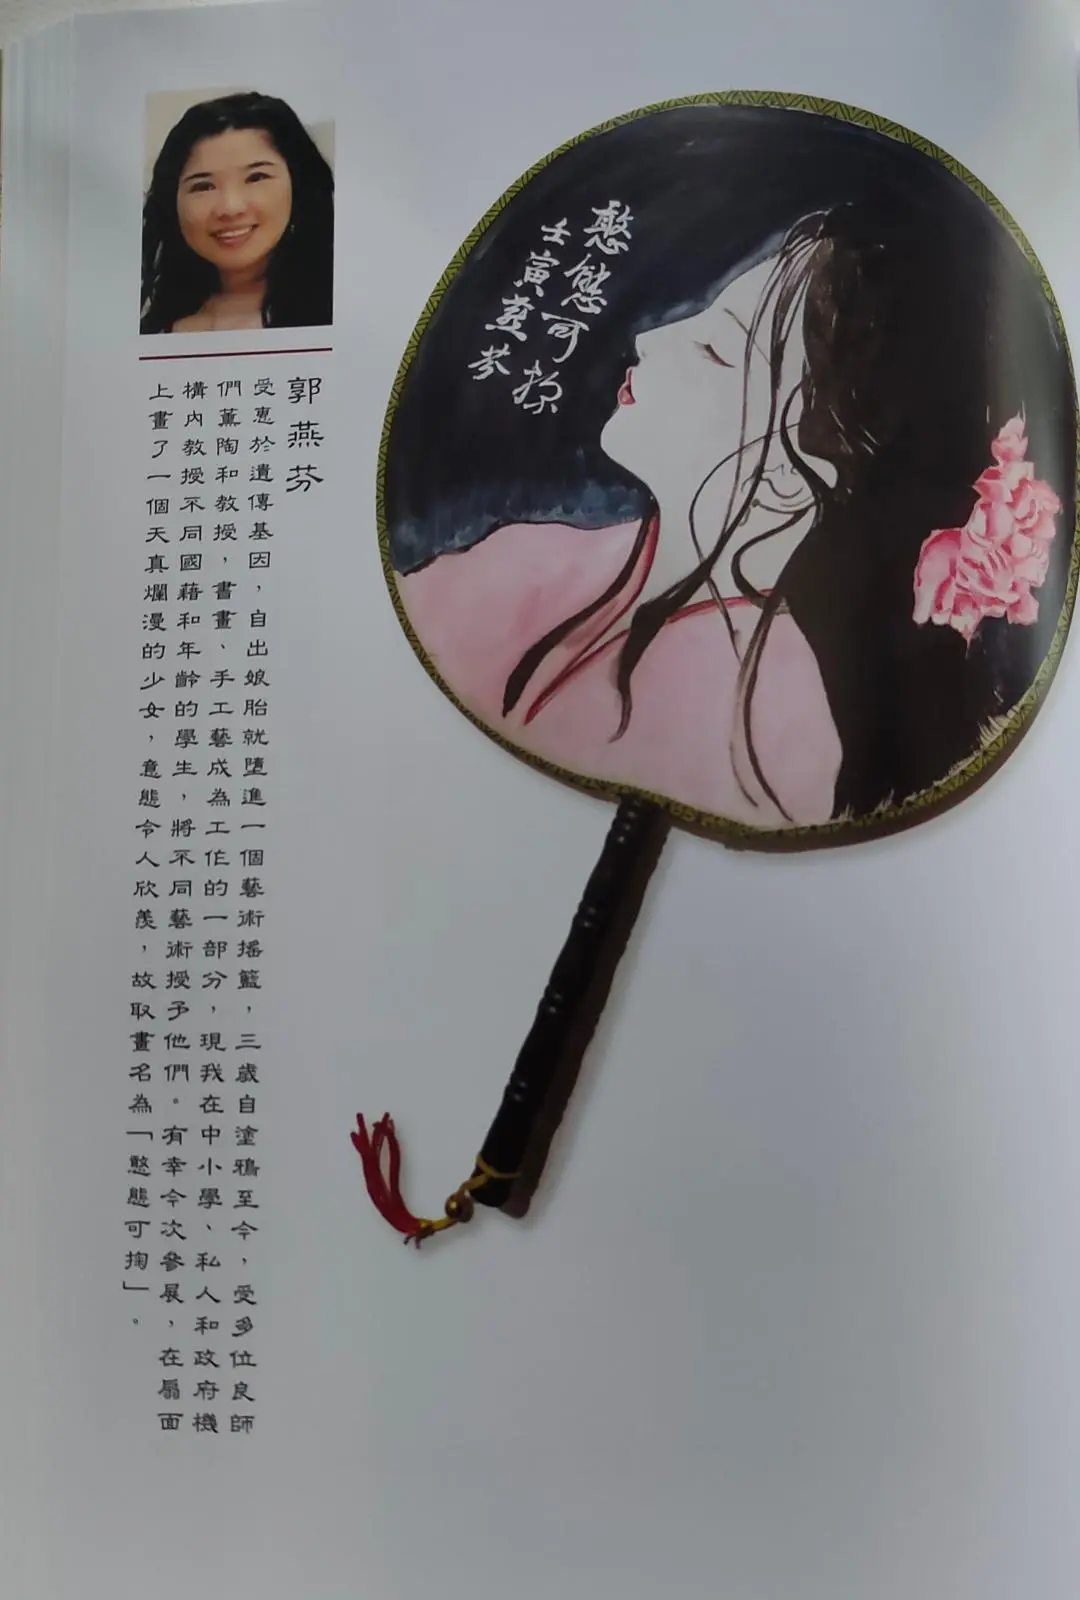 郭燕芬
受惠於遺傳基因，自出娘胎就墮進一個藝術搖籃，三歲自塗鴉至今，受多位良師
們薰陶和教授，書畫、手工藝成為工作的一部分，現我在中小學、私人和政府機
構內教授不同國藉和年齡的學生，將不同藝術授予他們。有幸今次參展，在扇面
上畫了一個天真爛漫的少女，意態令人欣羨，故取畫名為「憨態可掬」。
憨態可掬
壬寅燕芬